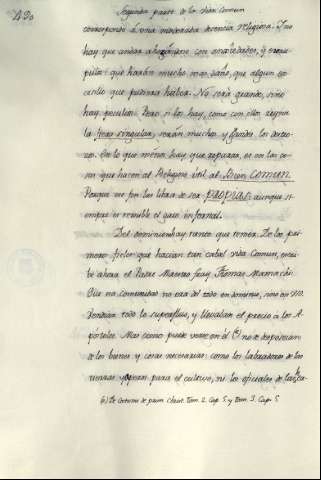 490
Segunda parte de la vida Comun
corresponde á una moderada decencia religiosa. Y no
hay que andar ahogandose con ansiedades, y escru-
pulos que harán mucho mas daño, que algun so-
cacillo que pudiera haber. No seria grande, sino
hay peculio. Pero si los hay, como con ellos reyna
la propiedad singular, serán muchos y grandes los
En lo que ménos hay que reparar, es en las co-
sas que hacen al Religioso util al Bien Comun.
Porque no son los libros de ser propias aunque si-
empre es remible el uso informal.
Del dominio no hay tanto que temer. De los pri-
meros fieles que hacian tan cabal vida Comun, escri-
be ahora el Padre Maestro fray Thomas Mamachi:
Que la comunidad no era del todo en dominio, sino en uso.
Vendian todo lo superfluo, y llevaban el precio á los A-
póstoles. Mas como puede verse en él (6) no se desposeian
de los bienes y cosas necesarias: como los labradores de los
para el cultivo, ni los oficiales de la
6) De Costumi de primi Christ. Tom. 2. Cap. 5. y Tom. 3. Cap. 5.